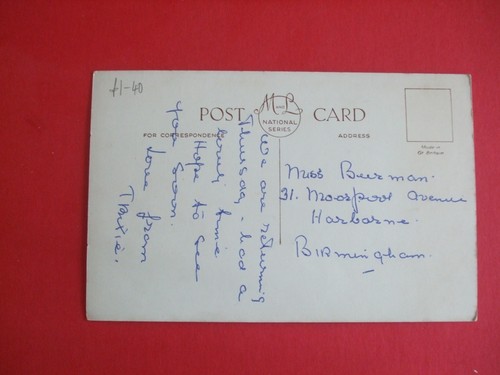 £1-40
POST CARD
NATIONAL
SERIES
FOR CORRESPONDENCE
ADDRESS
Made in
Gt Britain
We are returning
Thursday - had a
lovely time
Hope to see
you soon.
Love from
Trixie.
Miss Beerman.
31. Moorpool Avenue
Harborne
Birmingham.